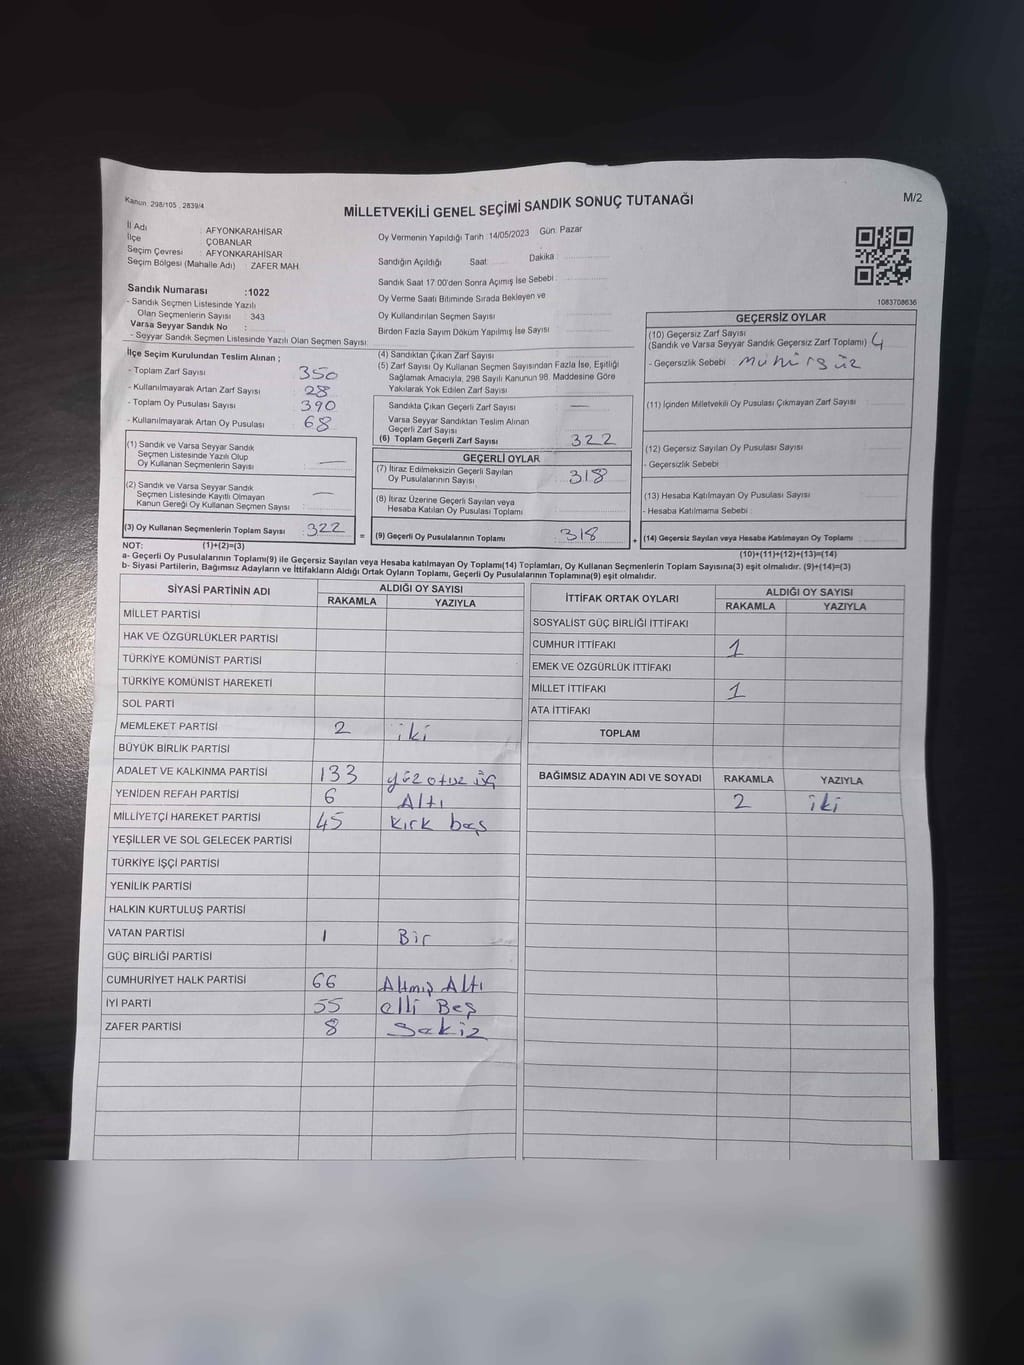 Kanun: 298/105 , 2839/4
MİLLETVEKİLİ GENEL SEÇİMİ SANDIK SONUÇ TUTANAĞI
M/2
İl Adı : AFYONKARAHİSAR
İlçe : ÇOBANLAR
Seçim Çevresi : AFYONKARAHİSAR
Seçim Bölgesi (Mahalle Adı) : ZAFER MAH
Oy Vermenin Yapıldığı Tarih :14/05/2023 Gün: Pazar
Sandığın Açıldığı Saat Dakika
Sandık Saat 17:00'den Sonra Açımış İse Sebebi :
Oy Verme Saati Bitiminde Sırada Bekleyen ve
Oy Kullandırılan Seçmen Sayısı
Birden Fazla Sayım Döküm Yapılmış İse Sayısı
1083708636
Sandık Numarası :1022
- Sandık Seçmen Listesinde Yazılı
Olan Seçmenlerin Sayısı : 343
Varsa Seyyar Sandık No :
- Seyyar Sandık Seçmen Listesinde Yazılı Olan Seçmen Sayısı:
İlçe Seçim Kurulundan Teslim Alınan ;
- Toplam Zarf Sayısı 350
- Kullanılmayarak Artan Zarf Sayısı 28
- Toplam Oy Pusulası Sayısı 390
- Kullanılmayarak Artan Oy Pusulası 68
(1) Sandık ve Varsa Seyyar Sandık
Seçmen Listesinde Yazılı Olup
Oy Kullanan Seçmenlerin Sayısı —
(2) Sandık ve Varsa Seyyar Sandık
Seçmen Listesinde Kayıtlı Olmayan
Kanun Gereği Oy Kullanan Seçmen Sayısı —
(3) Oy Kullanan Seçmenlerin Toplam Sayısı 322
(4) Sandıktan Çıkan Zarf Sayısı
(5) Zarf Sayısı Oy Kullanan Seçmen Sayısından Fazla İse, Eşitliği
Sağlamak Amacıyla, 298 Sayılı Kanunun 98. Maddesine Göre
Yakılarak Yok Edilen Zarf Sayısı
Sandıkta Çıkan Geçerli Zarf Sayısı —
Varsa Seyyar Sandıktan Teslim Alınan
Geçerli Zarf Sayısı
(6) Toplam Geçerli Zarf Sayısı 322
GEÇERLİ OYLAR
(7) İtiraz Edilmeksizin Geçerli Sayılan
Oy Pusulalarının Sayısı 318
(8) İtiraz Üzerine Geçerli Sayılan veya
Hesaba Katılan Oy Pusulası Toplamı
= (9) Geçerli Oy Pusulalarının Toplamı 318 +
GEÇERSİZ OYLAR
(10) Geçersiz Zarf Sayısı
(Sandık ve Varsa Seyyar Sandık Geçersiz Zarf Toplamı) 4
- Geçersizlik Sebebi Mühürsüz
(11) İçinden Milletvekili Oy Pusulası Çıkmayan Zarf Sayısı
(12) Geçersiz Sayılan Oy Pusulası Sayısı
- Geçersizlik Sebebi
(13) Hesaba Katılmayan Oy Pusulası Sayısı
- Hesaba Katılmama Sebebi :
(14) Geçersiz Sayılan veya Hesaba Katılmayan Oy Toplamı
NOT: (1)+(2)=(3)
(10)+(11)+(12)+(13)=(14)
a- Geçerli Oy Pusulalarının Toplamı(9) ile Geçersiz Sayılan veya Hesaba katılmayan Oy Toplamı(14) Toplamları, Oy Kullanan Seçmenlerin Toplam Sayısına(3) eşit olmalıdır. (9)+(14)=(3)
b- Siyasi Partilerin, Bağımsız Adayların ve İttifakların Aldığı Ortak Oyların Toplamı, Geçerli Oy Pusulalarının Toplamına(9) eşit olmalıdır.
SİYASİ PARTİNİN ADI ALDIĞI OY SAYISI
RAKAMLA YAZIYLA
MİLLET PARTİSİ
HAK VE ÖZGÜRLÜKLER PARTİSİ
TÜRKİYE KOMÜNİST PARTİSİ
TÜRKİYE KOMÜNİST HAREKETİ
SOL PARTİ
MEMLEKET PARTİSİ 2 iki
BÜYÜK BİRLİK PARTİSİ
ADALET VE KALKINMA PARTİSİ 133 yüz otuz üç
YENİDEN REFAH PARTİSİ 6 Altı
MİLLİYETÇİ HAREKET PARTİSİ 45 Kırk beş
YEŞİLLER VE SOL GELECEK PARTİSİ
TÜRKİYE İŞÇİ PARTİSİ
YENİLİK PARTİSİ
HALKIN KURTULUŞ PARTİSİ
VATAN PARTİSİ 1 Bir
GÜÇ BİRLİĞİ PARTİSİ
CUMHURİYET HALK PARTİSİ 66 Altmış Altı
İYİ PARTİ 55 elli Beş
ZAFER PARTİSİ 8 Sekiz
İTTİFAK ORTAK OYLARI ALDIĞI OY SAYISI
RAKAMLA YAZIYLA
SOSYALİST GÜÇ BİRLİĞİ İTTİFAKI
CUMHUR İTTİFAKI 1
EMEK VE ÖZGÜRLÜK İTTİFAKI
MİLLET İTTİFAKI 1
ATA İTTİFAKI
TOPLAM
BAĞIMSIZ ADAYIN ADI VE SOYADI RAKAMLA YAZIYLA
2 iki